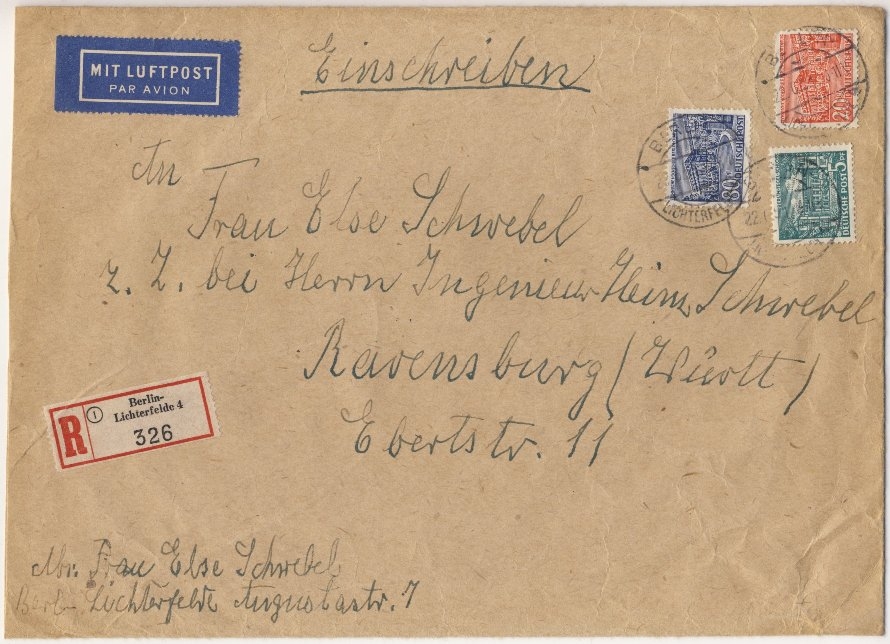 MIT LUFTPOST
PAR AVION
Einschreiben
20 DEUTSCHE
BERLIN
80 DEUTSCHE POST
LICHTERFEL
5 PF
DEUTSCHE POST
22.
An
Frau Else Schwebel
z. Z. bei Herrn Ingenieur Heinz Schwebel
Ravensburg (Württ)
Ebertstr. 11
R
1
Berlin-
Lichterfelde 4
326
Abs. Frau Else Schwebel
Berlin Lichterfelde Augustastr. 7